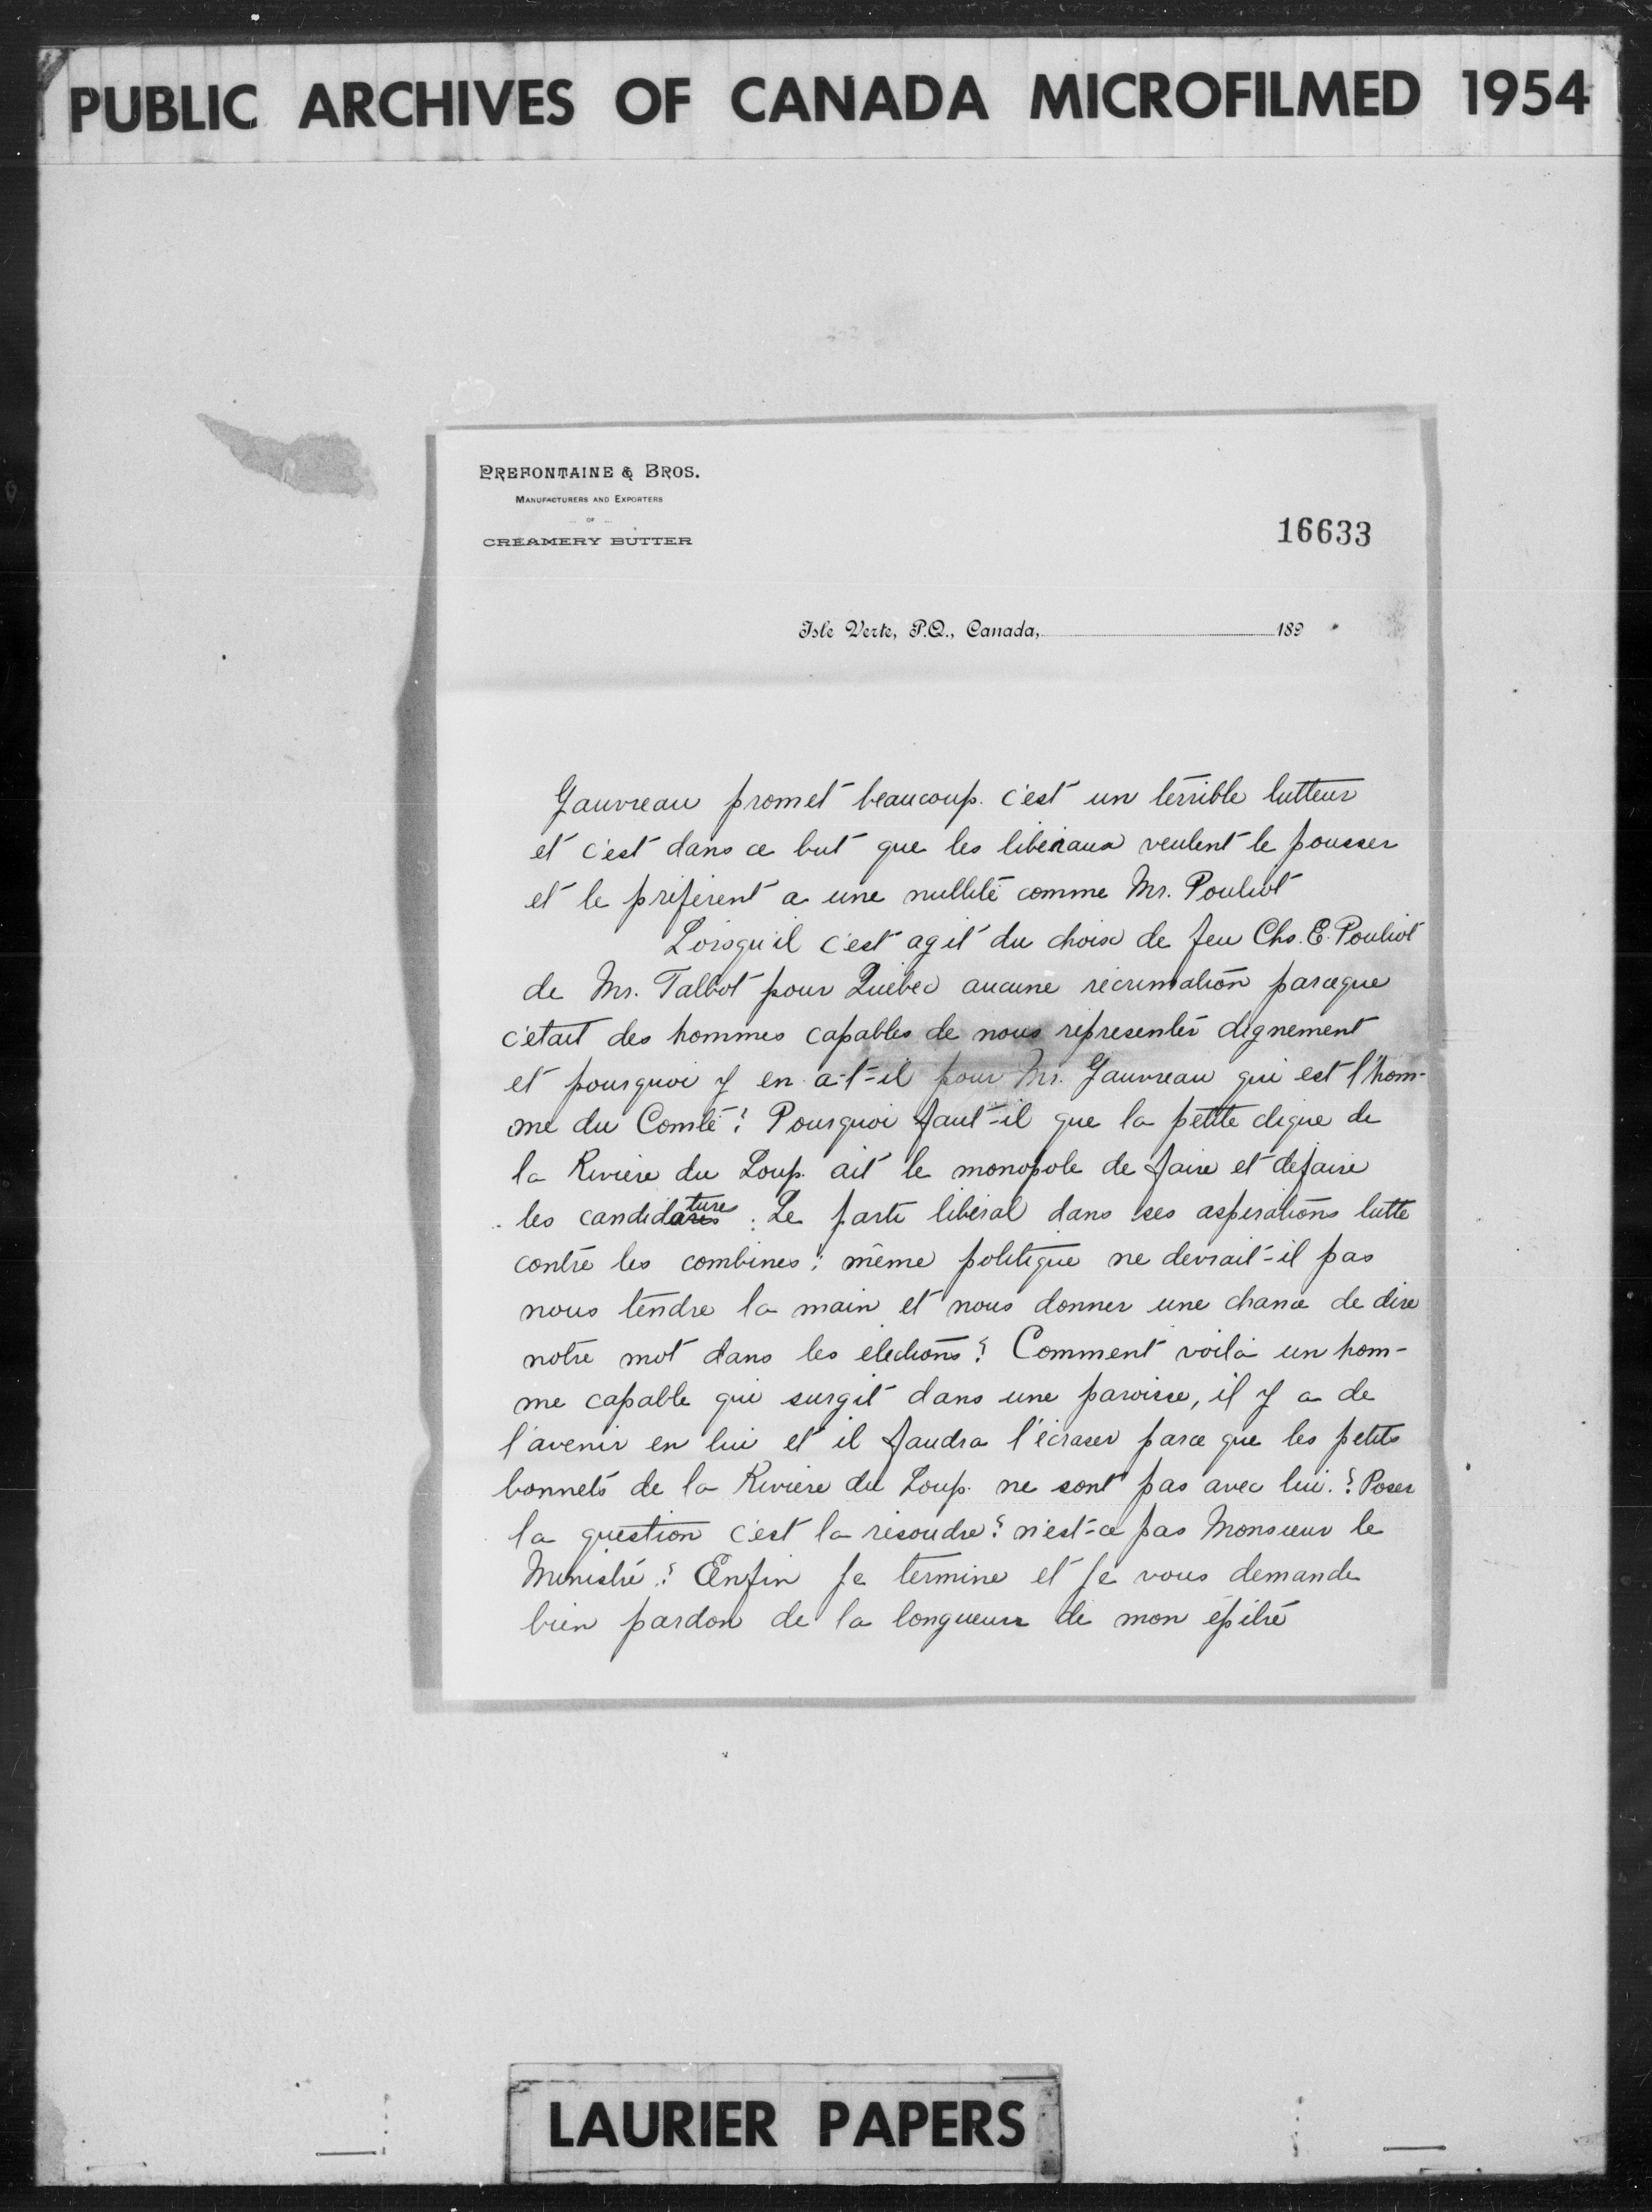 PUBLIC ARCHIVES OF CANADA MICROFILMED 1954
PREFONTAINE & BROS.
MANUFACTURERS AND EXPORTERS
OF
CREAMERY BUTTER
16633
Isle Verte, P.Q., Canada, 189
Gauvreau promet beaucoup. c'est un terrible lutteur
et c'est dans ce but que les libéraux veulent le pousser
et le préfèrent a une nullité comme Mr. Pouliot
Lorsqu'il c'est agit du choix de feu Chs. E. Pouliot
de Mr. Talbot pour Québec aucune récrimation parceque
c'etait des hommes capables de nous représenter dignement
et pourquoi y en a-t-il pour Mr. Gauvreau qui est l'hom-
me du Comté? Pourquoi faut-il que la petite clique de
la Rivière du Loup ait le monopole de faire et défaire
les candidatures : Le parti libéral dans ses aspirations lutte
contre les combines; même politique ne devrait-il pas
nous tendre la main et nous donner une chance de dire
notre mot dans les élections? Comment voilà un hom-
me capable qui surgit dans une paroisse, il y a de
l'avenir en lui et il faudra l'écraser parce que les petits
bonnets de la Rivière du Loup ne sont pas avec lui.? Poser
la question c'est la résoudre? n'est-ce pas Monsieur le
Ministre? Enfin je termine et je vous demande
bien pardon de la longueur de mon épitre
LAURIER PAPERS